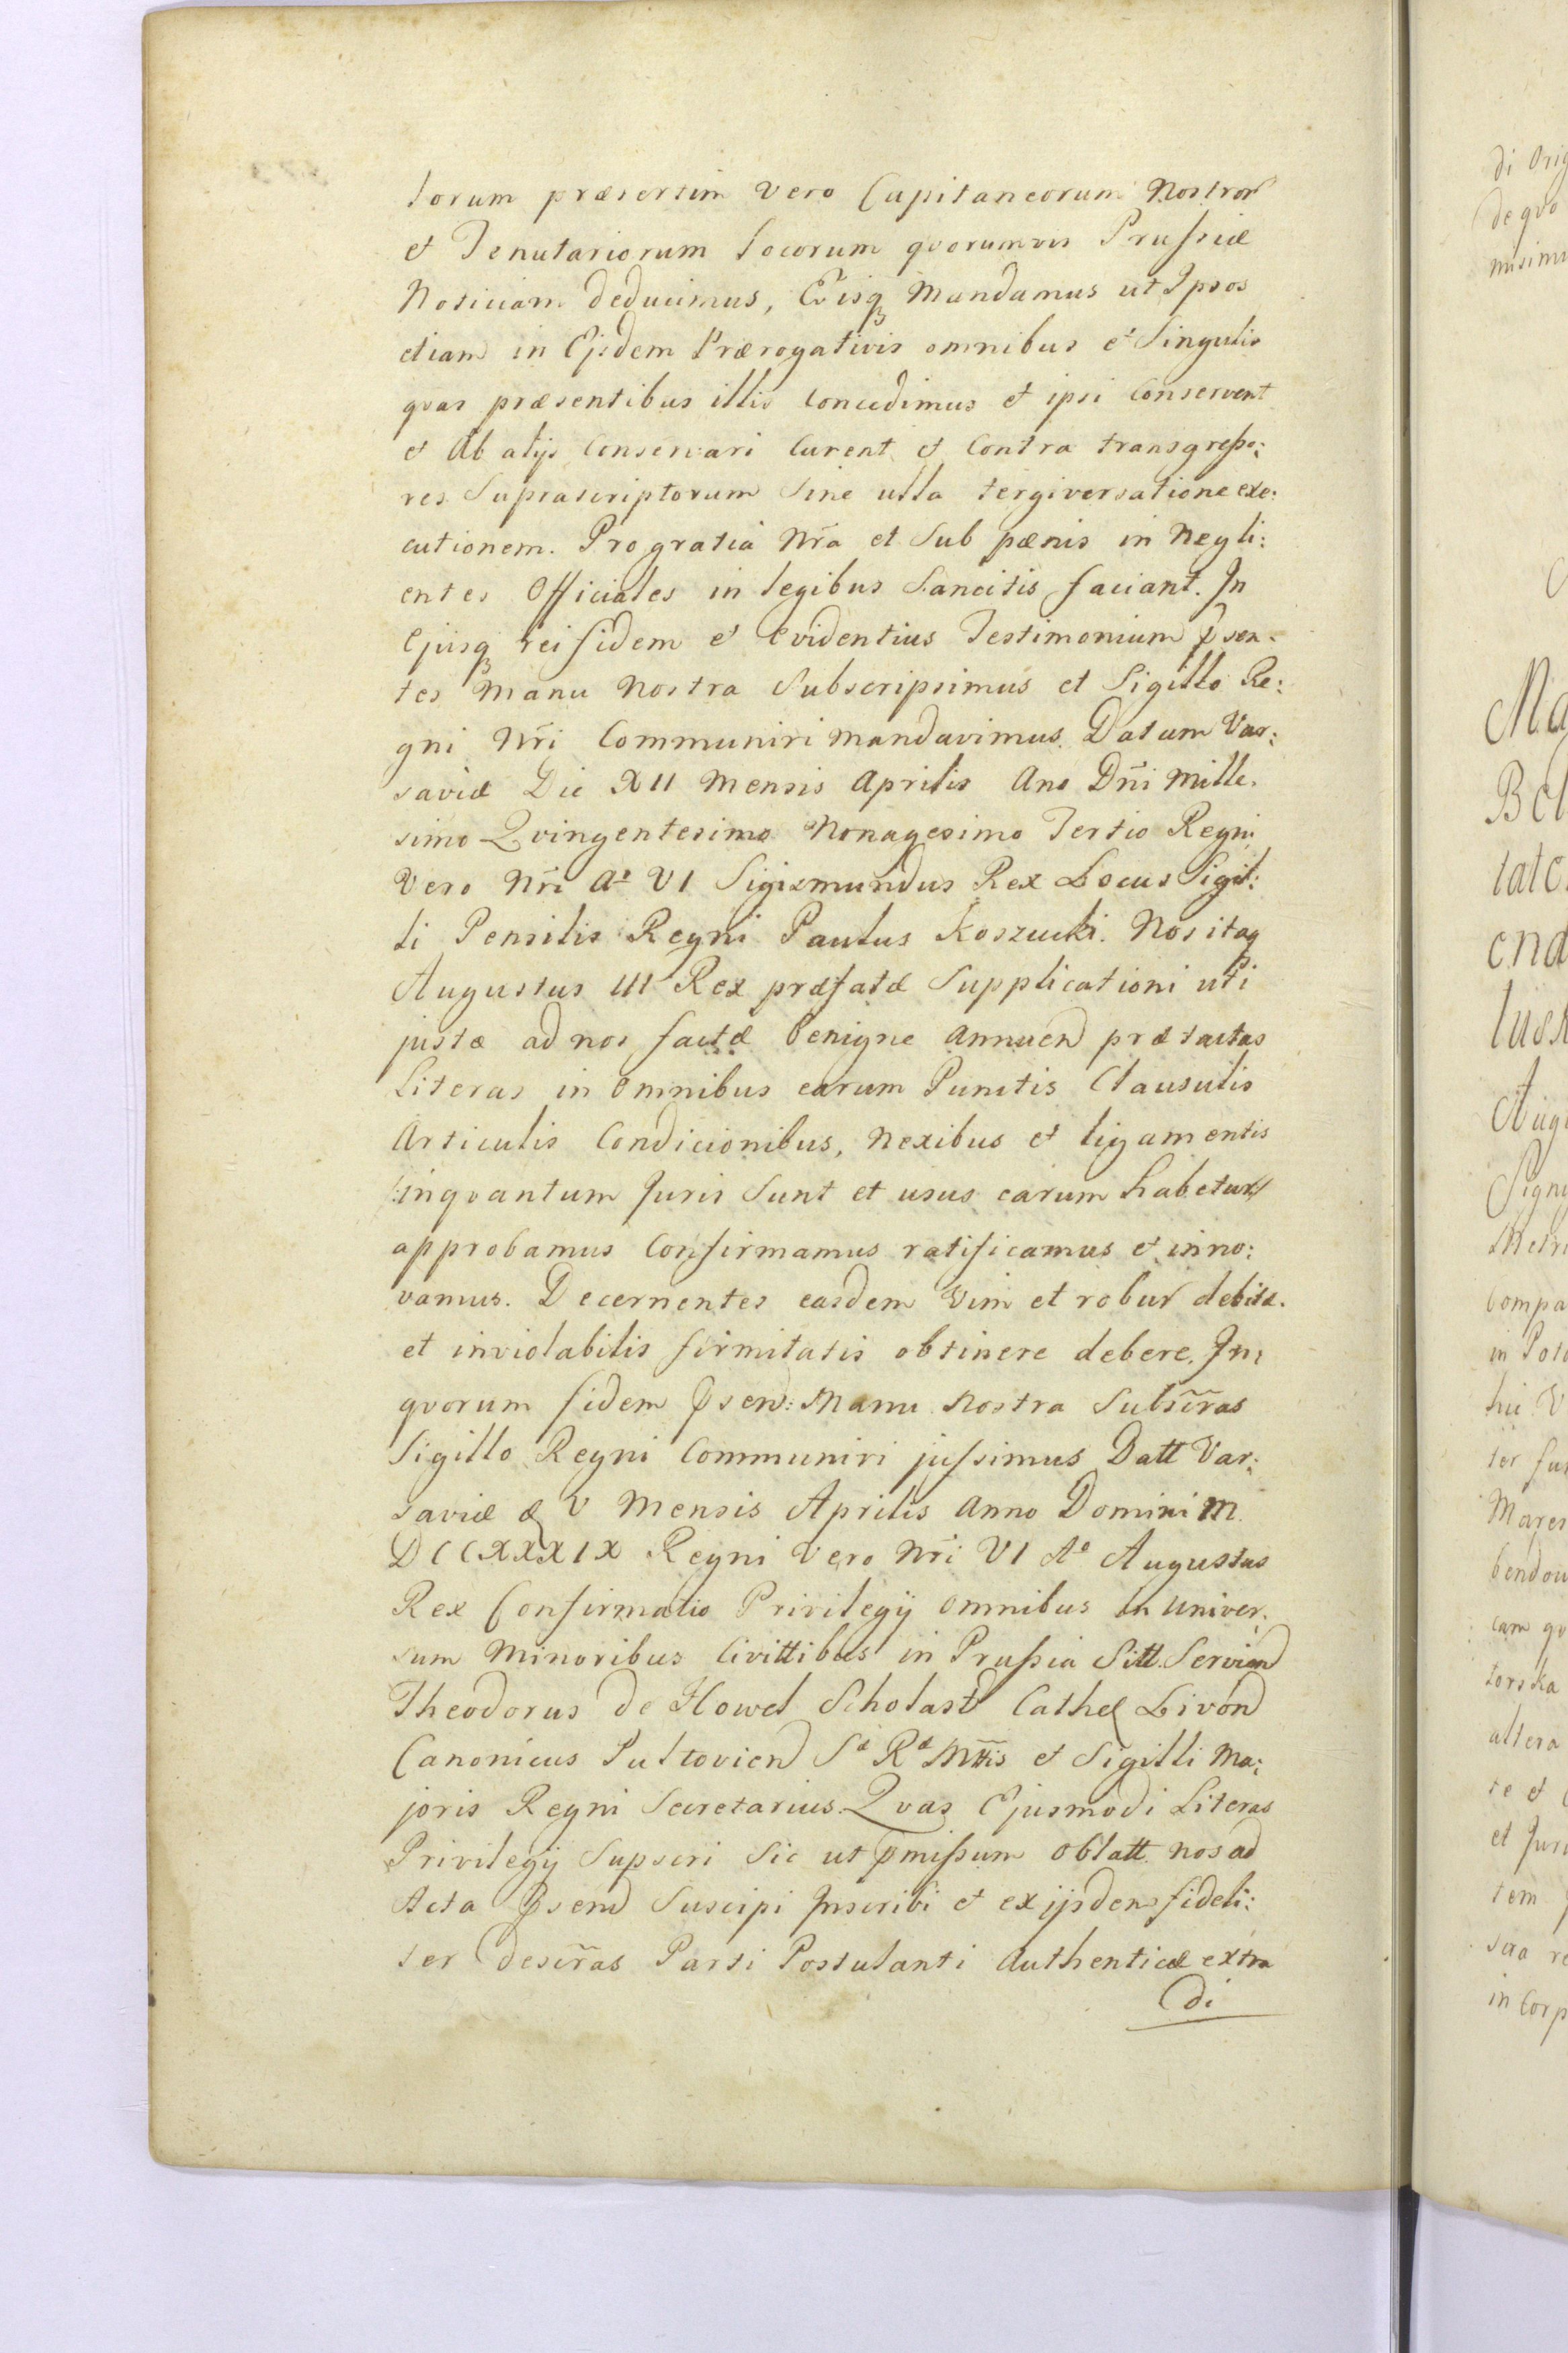 torum præsertim vero Capitaneorum Nostror
et Tenutariorum locorum qvorumvis Prussiæ
Noticiam deducimus, Eisq Mandamus ut Ipsos
etiam in Ejsdem Prærogativis omnibus et Singulis
qvas præsentibus illis Concedimus et ipsi Conservent
et Ab alijs Conservari Curent et Contra transgresso:
res Suprascriptorum Sine ulla tergiversatione exe:
cutionem. Pro gratia Nr̃a et Sub pænis in Negli:
entes Officiales in legibus Sancitis faciant. In
Ejusq rei fidem et Evidentius Testimonium p̃sen:
tes Manu Nostra Subscripsimus et Sigillo Re:
gni Nr̃i Communiri Mandavimus. Datum Var:
saviæ Die XII Mensis Aprilis Ano Dn̄i Mille.
simo Qvingentesimo Nonagesimo Tertio Regni
Vero Nr̃i Aº VI Sigismundus Rex Locus Sigil:
li Pensilis Regni Paulus Koszucki. Nos itaq
Augustus III Rex præfatæ Supplicationi uti
justæ ad nos factæ benigne Annuend prætactas
Literas in omnibus earum Punctis Clausulis
Articulis Condicionibus, Nexibus et ligamentis
/:inqvantum Juris Sunt et usus earum habetur:/
approbamus Confirmamus ratificamus et inno:
vamus. Decernentes easdem Vim et robur debitæ.
et inviolabilis firmitatis obtinere debere. In
qvorum fidem p̃send: Manu Nostra Subscr̃as
Sigillo Regni Communiri jussimus Datt Var:
saviæ d V Mensis Aprilis Anno Domini M.
DCCXXXIX Regni Vero Nr̃i VI Aº Augustus
Rex Confirmatio Privilegij omnibus in univer.
sum Minoribus Civittibus in Prussia Sitt. Serviend
Theodorus de Howel Scholast Cathed Livond
Canonicus Pultoviend Sæ Ræ Mttis et Sigilli Ma:
joris Regni Secretarius. Qvas Ejusmodi Literas
Privilegij Supscri Sic ut p̃missum oblatt nos ad
Acta p̃send Suscipi Inscribi et ex ijsdem fideli:
ter descr̃as Parti Postulanti Authenticæ extra
di